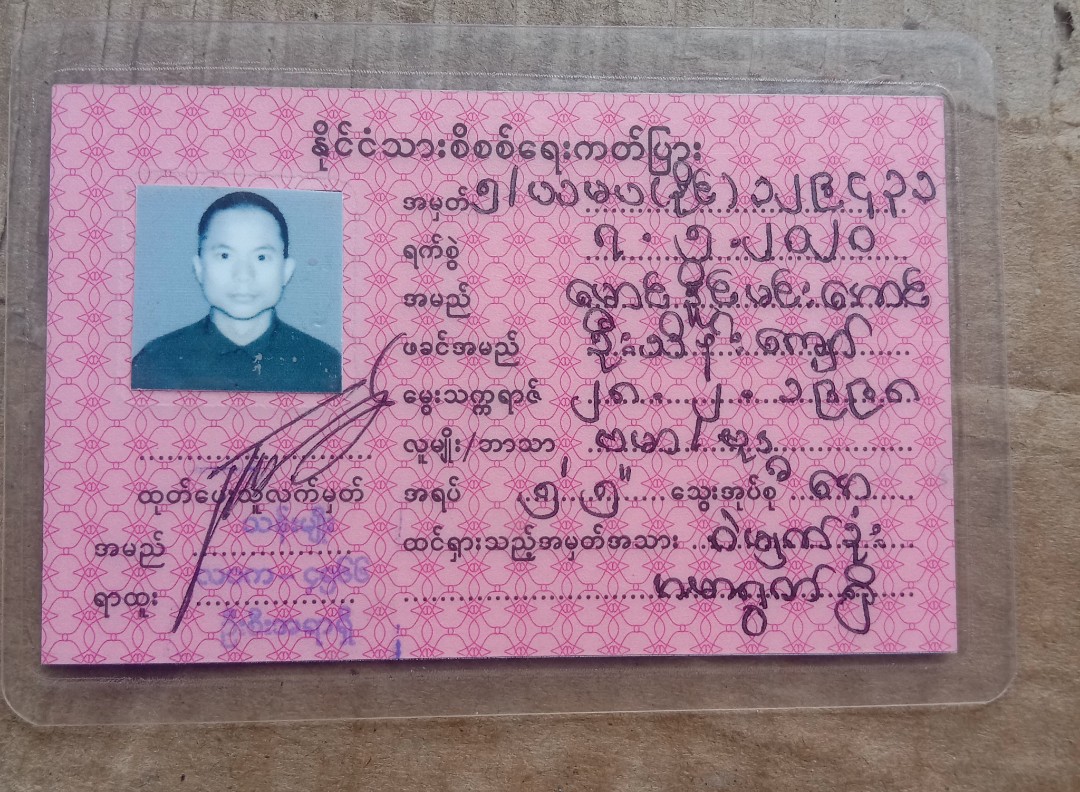 နိုင်ငံသားစိစစ်ရေးကတ်ပြား
အမှတ် ၅/ယမပ(နိုင်)၁၂၉၄၃၁
ရက်စွဲ ၇.၅.၂၀၂၀
အမည် မောင်နိုင်မင်းအောင်
ဖခင်အမည် ဦးသိန်းကျော်
မွေးသက္ကရာဇ် ၂၈.၂.၁၉၉၈
လူမျိုး/ဘာသာ ဗမာ/ဗုဒ္ဓ
အရပ် ၅' ၅" သွေးအုပ်စု
ထင်ရှားသည့်အမှတ်အသား ဝဲမျက်ခုံး
ထုတ်ပေးသူလက်မှတ်
အမည် သန်းမျိုး
ရာထူး ဦးစီးအရာရှိ